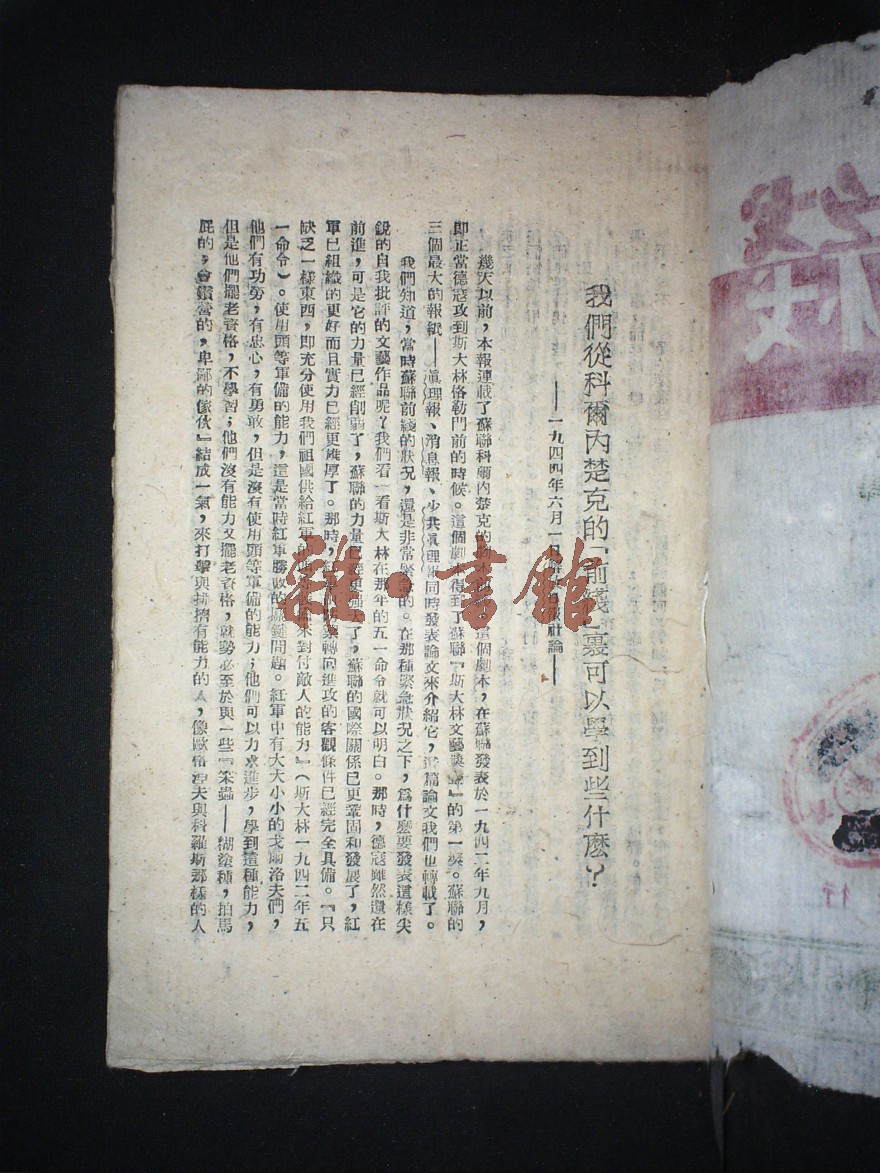 我們從科爾內楚克的「前綫」裏可以學到些什麽？
——一九四四年六月一日 社論——
幾天以前，本報連載了蘇聯科爾內楚克的 這個劇本，在蘇聯發表於一九四二年九月，
即正當德寇攻到斯大林格勒門前的時候。這個劇 得到了蘇聯『斯大林文藝獎 』的第一獎。蘇聯的
三個最大的報紙——眞理報、消息報、少共眞理報同時發表論文來介紹它，這篇論文我們也轉載了。
我們知道，當時蘇聯前綫的狀況，還是非常緊急的。在那種緊急狀況之下，爲什麽要發表這樣尖
銳的自我批評的文藝作品呢？我們看一看斯大林在那年的五一命令就可以明白。那時，德寇雖然還在
前進，可是它的力量已經削弱了，蘇聯的力量已經更強大了，蘇聯的國際關係已更鞏固和發展了，紅
軍已組織的更好而且實力已經更雄厚了。那時， 轉向進攻的客觀條件已經完全具備。『只
缺乏一樣東西，即充分使用我們祖國供給紅軍的 來對付敵人的能力』（斯大林一九四二年五
一命令）。使用頭等軍備的能力，這是當時紅軍勝敗的關鍵問題。紅軍中有大大小小的戈爾洛夫們，
他們有功勞，有忠心，有勇敢，但是沒有使用頭等軍備的能力；他們可以力求進步，學到這種能力，
但是他們擺老資格，不學習；他們沒有能力又擺老資格，就勢必至於與一些『笨蟲——糊塗種，拍馬
屁的，會鑽營的，卑鄙的傢伙』結成一氣，來打擊與排擠有能力的人，像歐格涅夫與科羅斯那樣的人
雜·書館